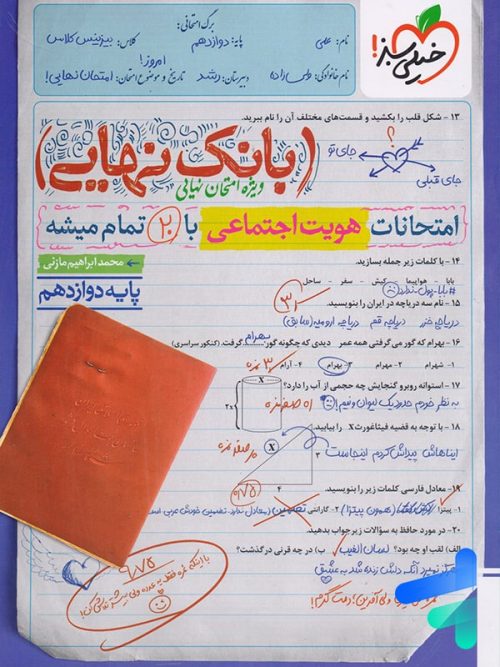 خیلی سبز!
برگ امتحانی:
نام: علی پایه: دوازدهم کلاس: بیزینس کلاس
امروز!
نام خانوادگی: دبیرستان: رشد تاریخ و موضوع امتحان: امتحان نهایی!
۱۳ - شکل قلب را بکشید و قسمت‌های مختلف آن را نام ببرید.
؟
جای تو
جای قبلی
(بانک نهایی)
ویژه امتحان نهایی
امتحانات هویت اجتماعی با ۲۰ تمام میشه
محمد ابراهیم مازنی
پایه دوازدهم
۱۴ - با کلمات زیر جمله بسازید.
بابا - هواپیما - کیش - سفر - ساحل
#بابا_پول_ندارد
۱۵ - نام سه دریاچه در ایران را بنویسید.
دریاچه خزر دریاچه قم دریاچه ارومیه (سابق)
۱۶ - بهرام که گور می‌گرفتی همه عمر دیدی که چگونه گور بهرام گرفت. (کنکور سراسری)
۱- شهرام ۲- مهرام ۳- بهرام ۴- آرام
۱۷ - استوانه روبرو گنجایش چه حجمی از آب را دارد؟
به نظر خودم حدود یک لیوان و نیم
۱۸ - با توجه به قضیه فیثاغورث X را بیابید.
ایناهاش پیداش کردم اینجاست
X
2x
X
۳
۴
۱۹- معادل فارسی کلمات زیر را بنویسید.
۱- پیتزا (همون پیتزا) ۲- گارانتی تضمین
۲۰- در مورد حافظ به سؤالات زیر جواب بدهید.
الف) لقب او چه بود؟ لسان الغیب ب) در چه قرنی در گذشت؟
هرگز نمیرد آنکه دلش زنده شد به عشق
۹/۷۵